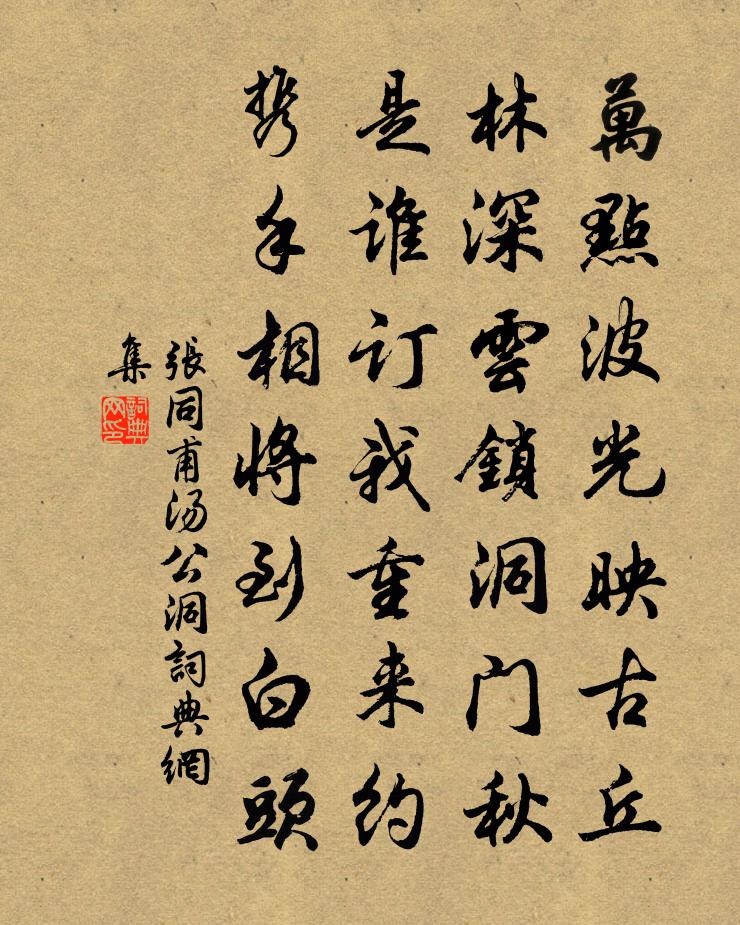 萬點波光映古丘
林深雲鎖洞門秋
是誰订我重来約
携手相将到白頭
張同甫汤公洞詞典網
集
詞典
网印